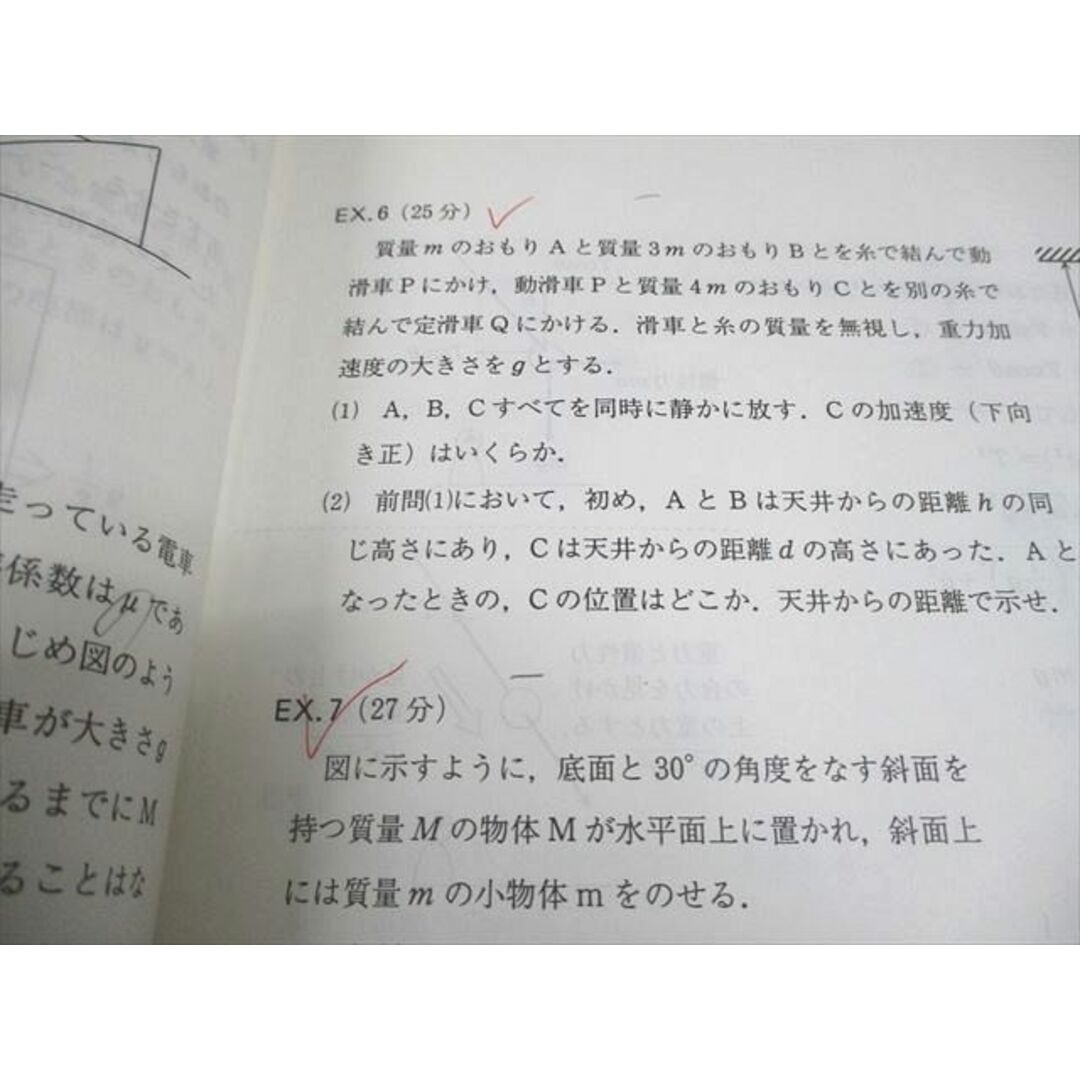 EX.6 (25分)
質量mのおもりAと質量3mのおもりBとを糸で結んで動
滑車Pにかけ，動滑車Pと質量4mのおもりCとを別の糸で
結んで定滑車Qにかける．滑車と糸の質量を無視し，重力加
速度の大きさをgとする．
(1) A，B，Cすべてを同時に静かに放す．Cの加速度（下向
き正）はいくらか．
(2) 前問(1)において，初め，AとBは天井からの距離hの同
じ高さにあり，Cは天井からの距離dの高さにあった．Aと
なったときの，Cの位置はどこか．天井からの距離で示せ．
EX.7 (27分)
図に示すように，底面と30°の角度をなす斜面を
持つ質量Mの物体Mが水平面上に置かれ，斜面上
には質量mの小物体mをのせる．
走っている電車
係数はμであ
じめ図のよう
車が大きさg
るまでにM
ることはな